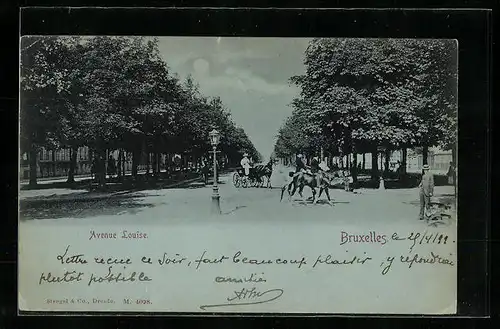 Avenue Louise.
Bruxelles, le 29/4/99.
Lettre reçue ce soir, fait beaucoup plaisir, y repondrai
plutôt possible.
amitiés
Stengel & Co., Dresde. M. 4098.